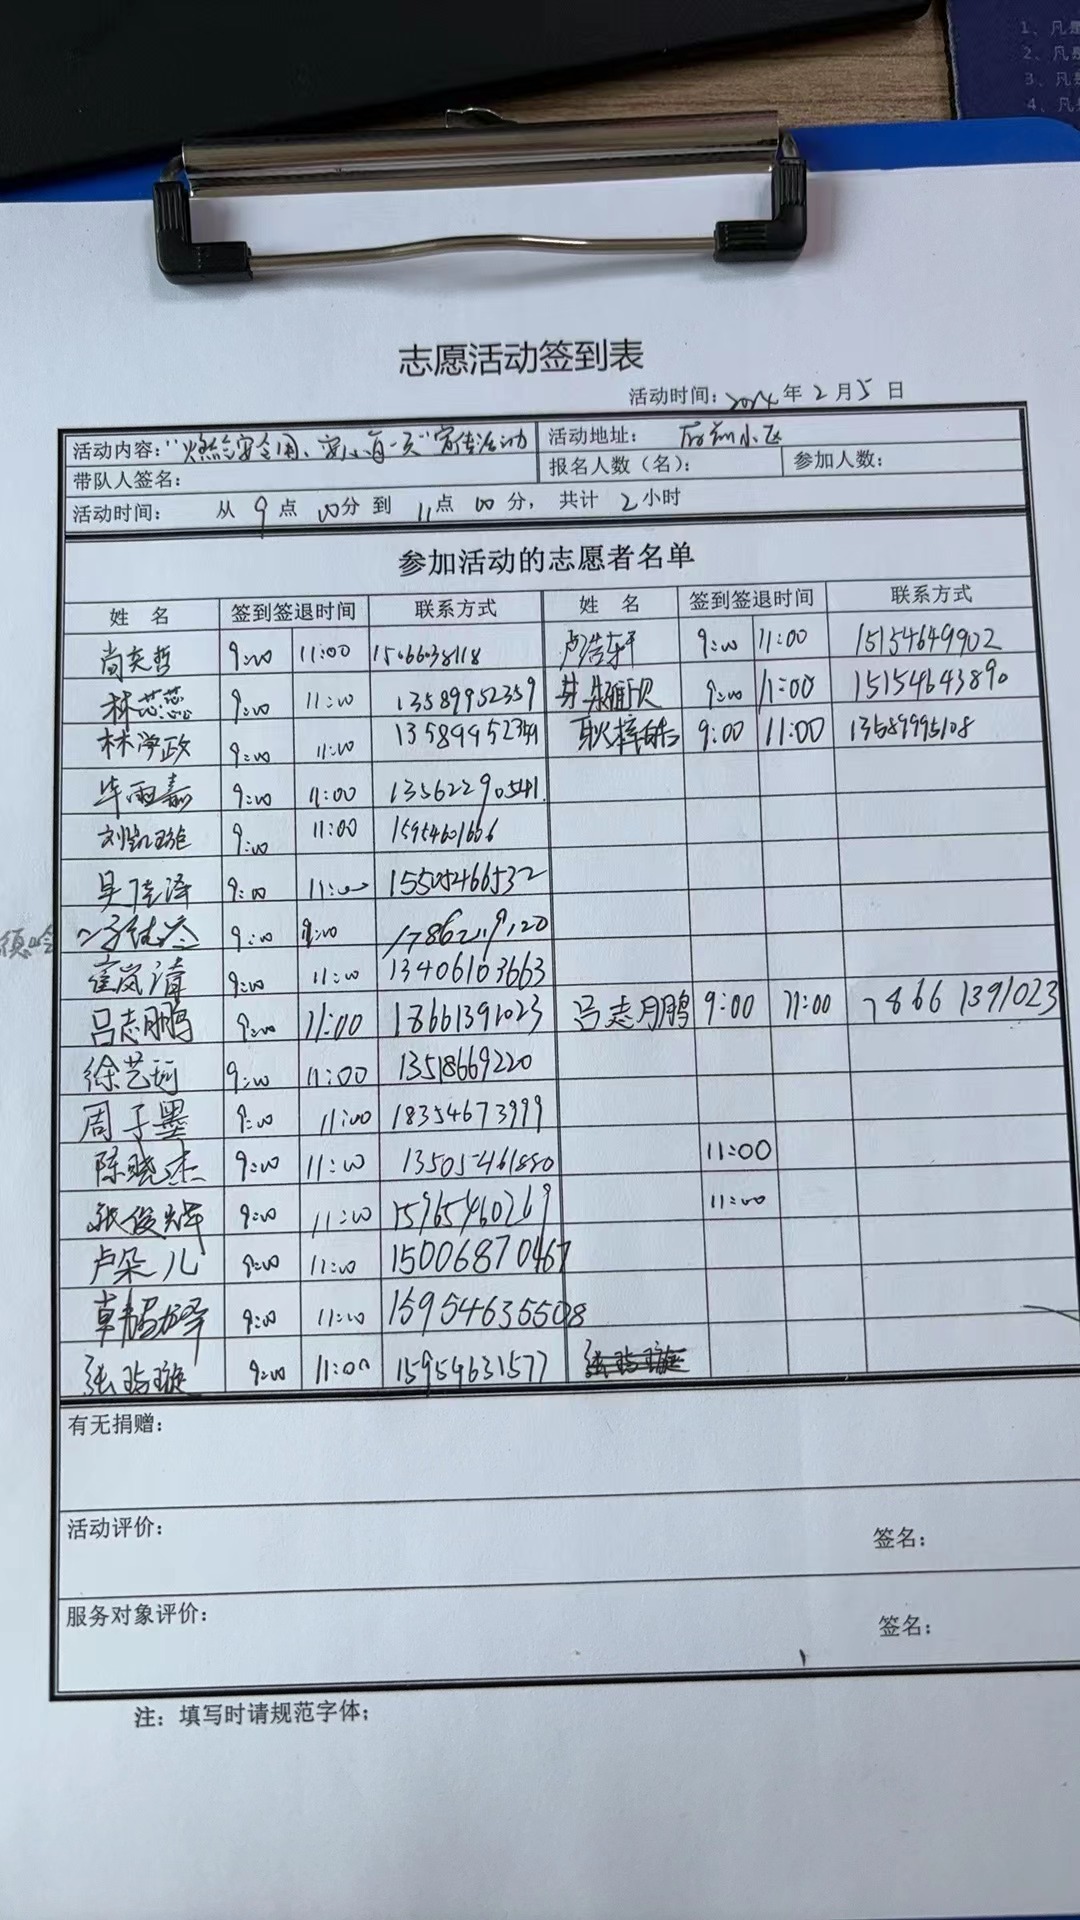 1、凡是
2、凡是
3、凡是
4、凡是
志愿活动签到表
活动时间：2024年2月5日
活动内容：“燃气安全用、安心每一天”宣传活动 活动地址：小区
带队人签名： 报名人数（名）： 参加人数：
活动时间： 从9点00分到11点00分，共计2小时
参加活动的志愿者名单
姓 名 签到签退时间 联系方式 姓 名 签到签退时间 联系方式
尚奕哲 9:00 11:00 15066038118 卢浩轩 9:00 11:00 15154649902
林蕊蕊 9:00 11:00 13589952359 9:00 11:00 15154643890
林学政 9:00 11:00 13589952359 耿梓皓 9:00 11:00 13589995108
毕雨嘉 9:00 11:00 13562290541
刘凯璇 9:00 11:00 15954601606
吴佳泽 9:00 11:00 15505466532
9:00 9:00
崔岚清 9:00 11:00 13406103663
吕志鹏 9:00 11:00 18661391023 吕志鹏 9:00 11:00 18661391023
徐艺珂 9:00 11:00 13518669220
周子墨 9:00 11:00 18354673999
陈晓杰 9:00 11:00 13505461880 11:00
张俊辉 9:00 11:00 15965460269 11:00
卢朵儿 9:00 11:00 15006870467
9:00 11:00 15954635508
张珆璇 9:00 11:00 15954631577 张珆璇
有无捐赠：
活动评价：
签名：
服务对象评价：
签名：
注：填写时请规范字体；